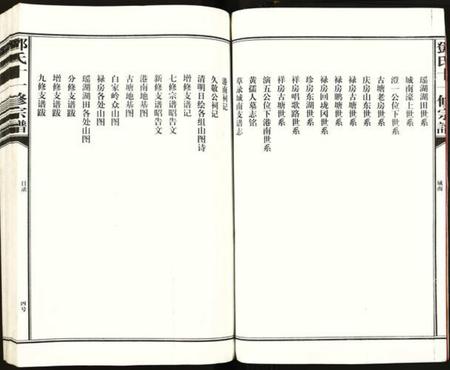 鄧氏十一修宗譜
城南
瑶湖湖田世系
城南濠上世系
澄一公位下世系
古塘老房世系
庆房山东世系
禄房鹏塘世系
禄房古塘世系
禄房回垅冈世系
珍房东湖世系
祥房唱歌路世系
祥房古塘世系
演五公位下港南世系
黄孺人墓志铭
草录城南支谱志
港南祠记
久敬公祠记
清明日绘各组山图诗
增修支谱记
七修宗谱昭告文
新修支谱昭告文
港南地基图
古塘地基图
白家岭众山图
禄房各处山图
瑶湖湖田各处山图
分修支谱跋
增修支谱跋
九修支谱跋
鄧氏十一修宗譜
目录
四号